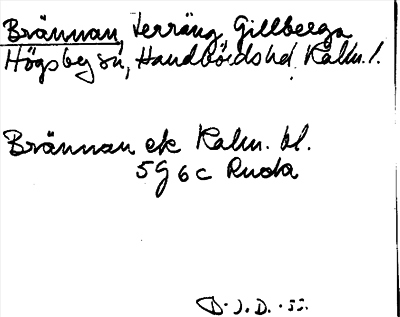 Brännan, Terräng, Gillberga
Högsby sn, Handbörds hd. Kalm. l.
Brännan ek Kalm. bl.
5G 6c Ruda
D. J. D. -55.